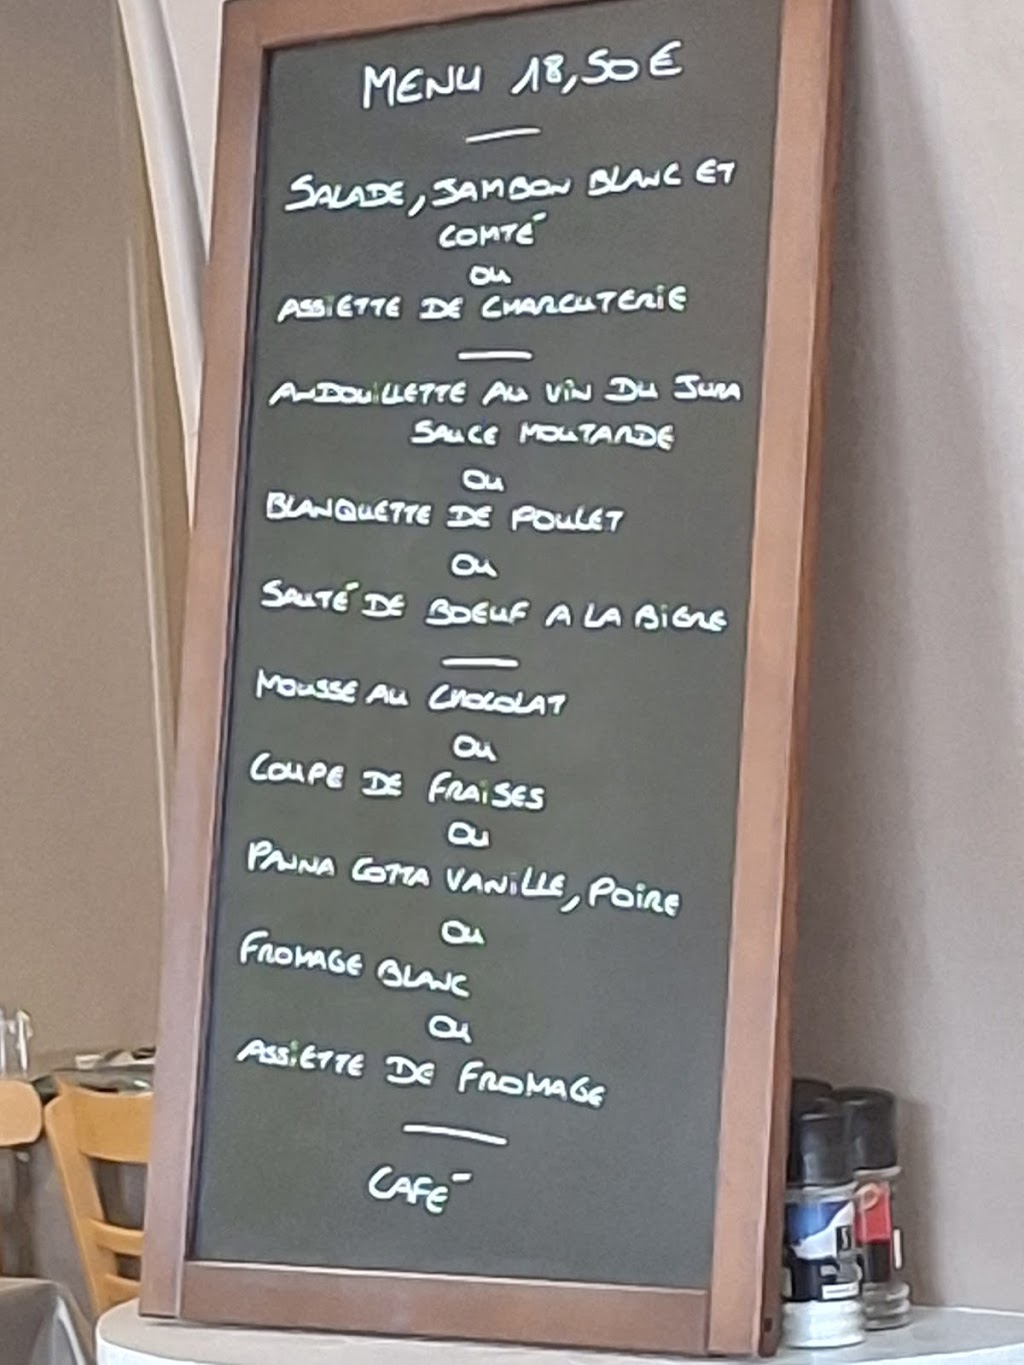 MENU 18,50€
SALADE, JAMBON BLANC ET
COMTÉ
OU
ASSIETTE DE CHARCUTERIE
ANDOUILLETTE AU VIN DU JURA
SAUCE MOUTARDE
OU
BLANQUETTE DE POULET
OU
SAUTÉ DE BOEUF A LA BIERE
MOUSSE AU CHOCOLAT
OU
COUPE DE FRAISES
OU
PANNA COTTA VANILLE, POIRE
OU
FROMAGE BLANC
OU
ASSIETTE DE FROMAGE
CAFÉ